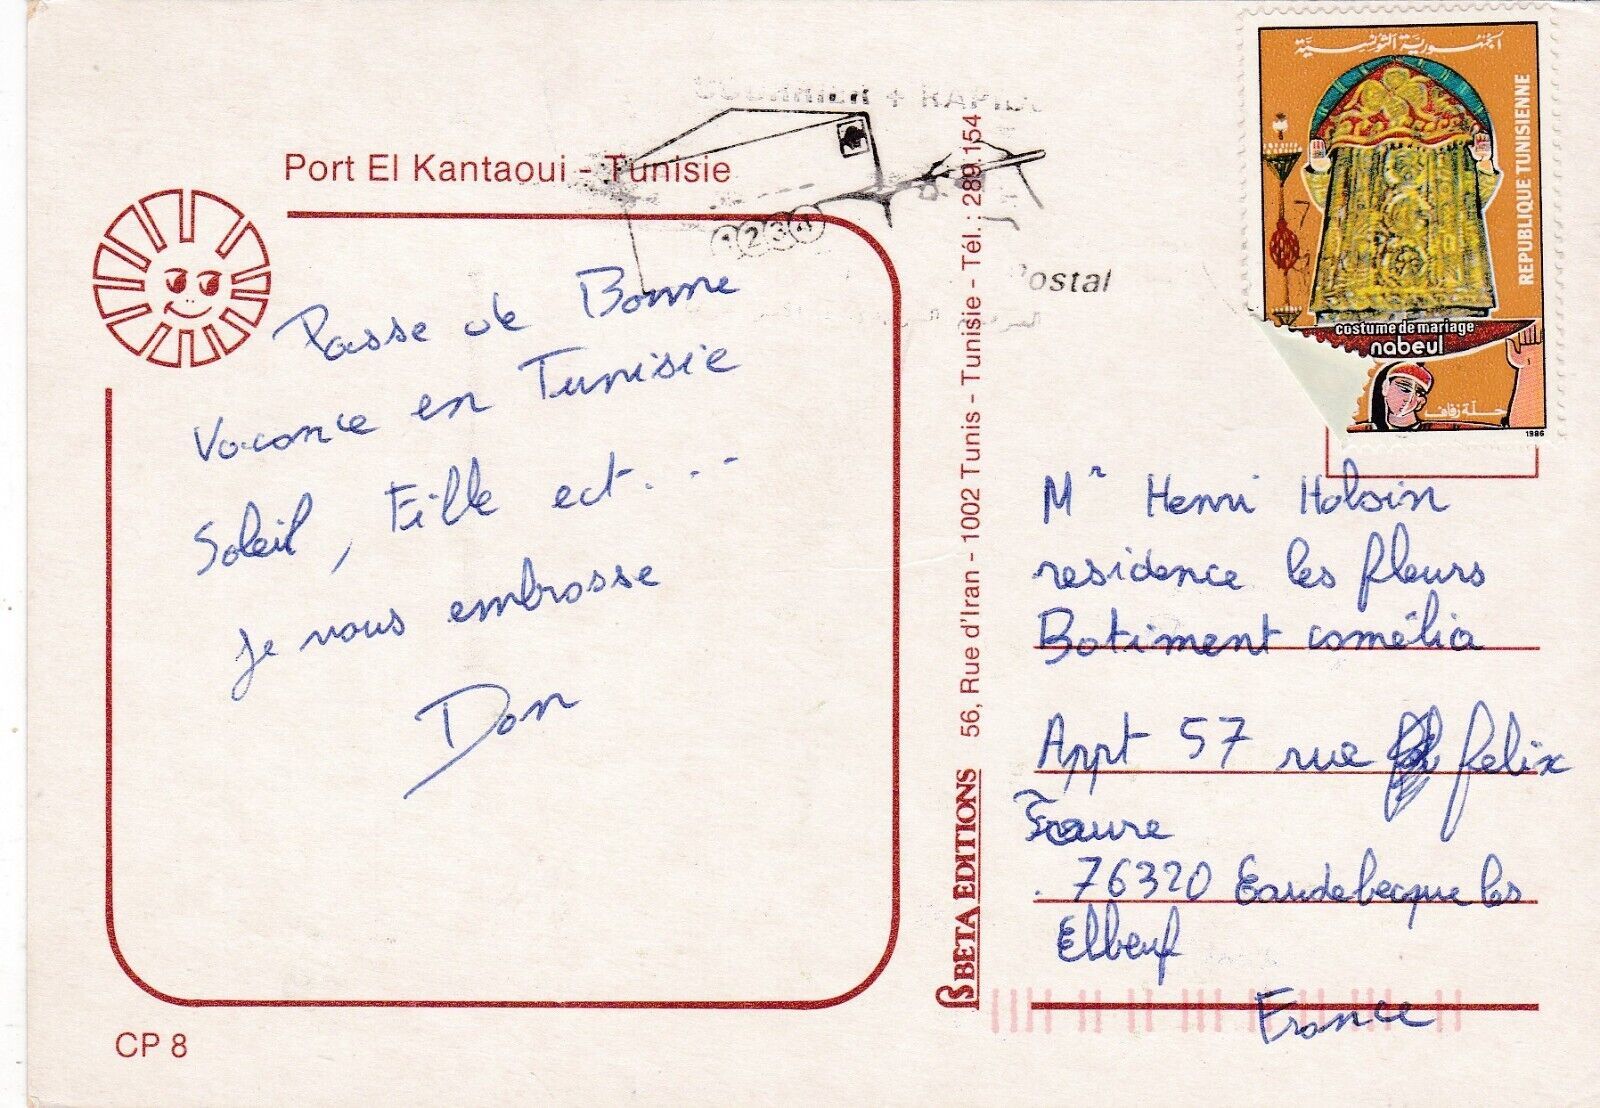 Port El Kantaoui - Tunisie
Passe de Bonne
Vacance en Tunisie
Soleil, Fille ect...
je vous embrasse
Dan
CP 8
1234
Postal
BETA EDITIONS 56, Rue d'Iran - 1002 Tunis - Tunisie - Tél.: 289.154
الجمهورية التونسية
REPUBLIQUE TUNISIENNE
costume de mariage
nabeul
حلة زفاف
1986
Mr Henri Holsin
residence les fleurs
Batiment camélia
Appt 57 rue felix
Faure
76320 Caudebecque les
Elbeuf
France